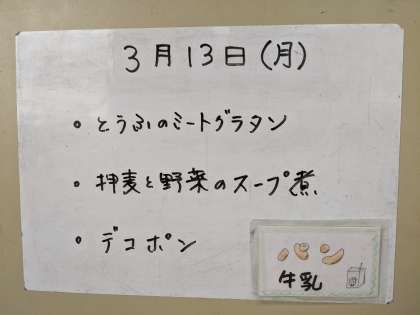 3月13日(月)
・とうふのミートグラタン
・押麦と野菜のスープ煮
・デコポン
パン
牛乳